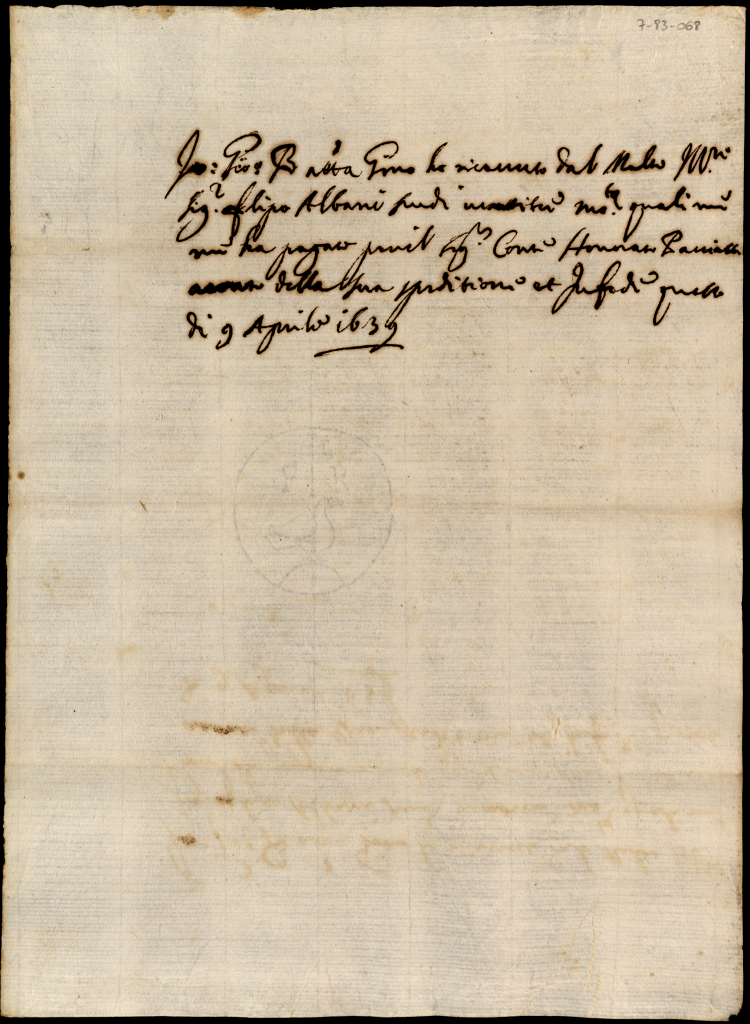 7-83-068
Io: Gio: Batta Gino ho riceuuto dal Molto Ill.re
Sig.r Filipo Albani scudi uentitre mo.ta quali mi
mi ha pagato per il Sig.r Conte Honorato
a conto della sua speditione et In fede questo
di 9 Aprile 1639